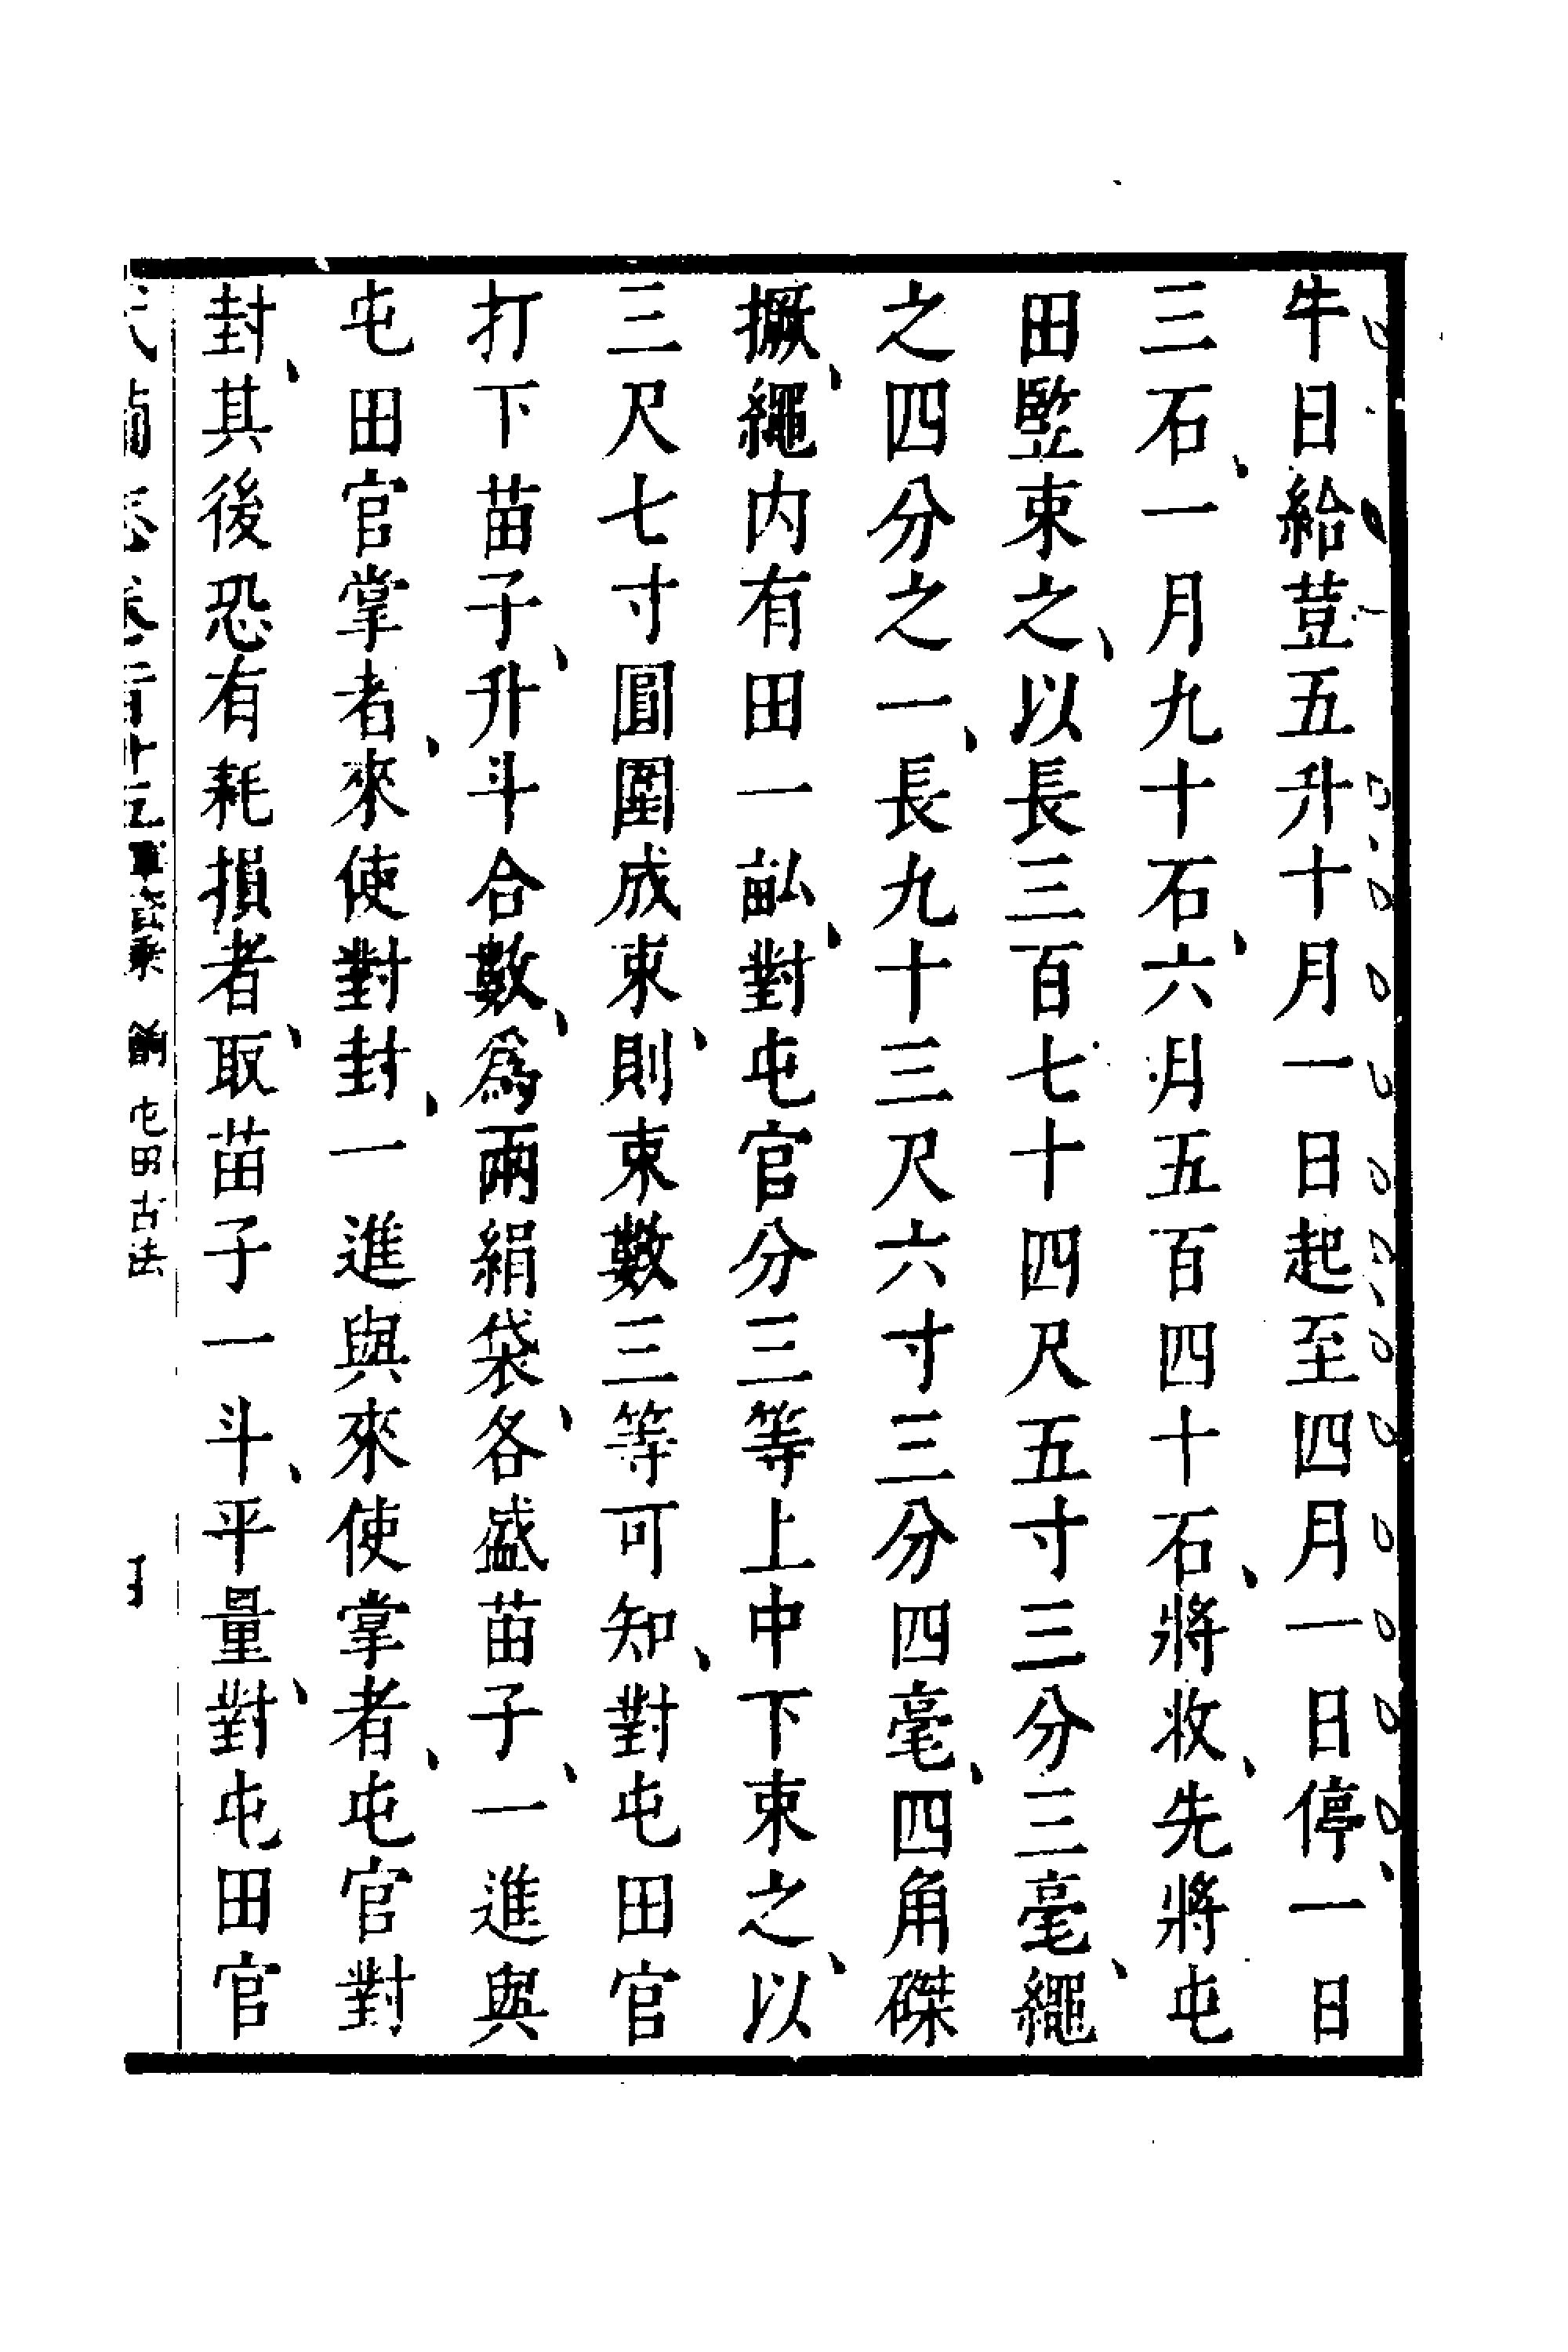 牛日給荳五升十月一日起至四月一日停一日
三石、一月九十石、六月五百四十石、將收、先將屯
田竪束之、以長三百七十四尺五寸三分三毫、繩
之四分之一、長九十三尺六寸三分四毫、四角磔
撅、繩内有田一畆、對屯官分三等上中下束之、以
三尺七寸圓圍成束、則束數三等可知、對屯田官
打下苗子、升斗合數、爲兩絹袋、各盛苗子、一進與
屯田官掌者、來使對封、一進與來使掌者、屯官對
封、其後恐有耗損者、取苗子一斗、平量、對屯田官
屯田古法